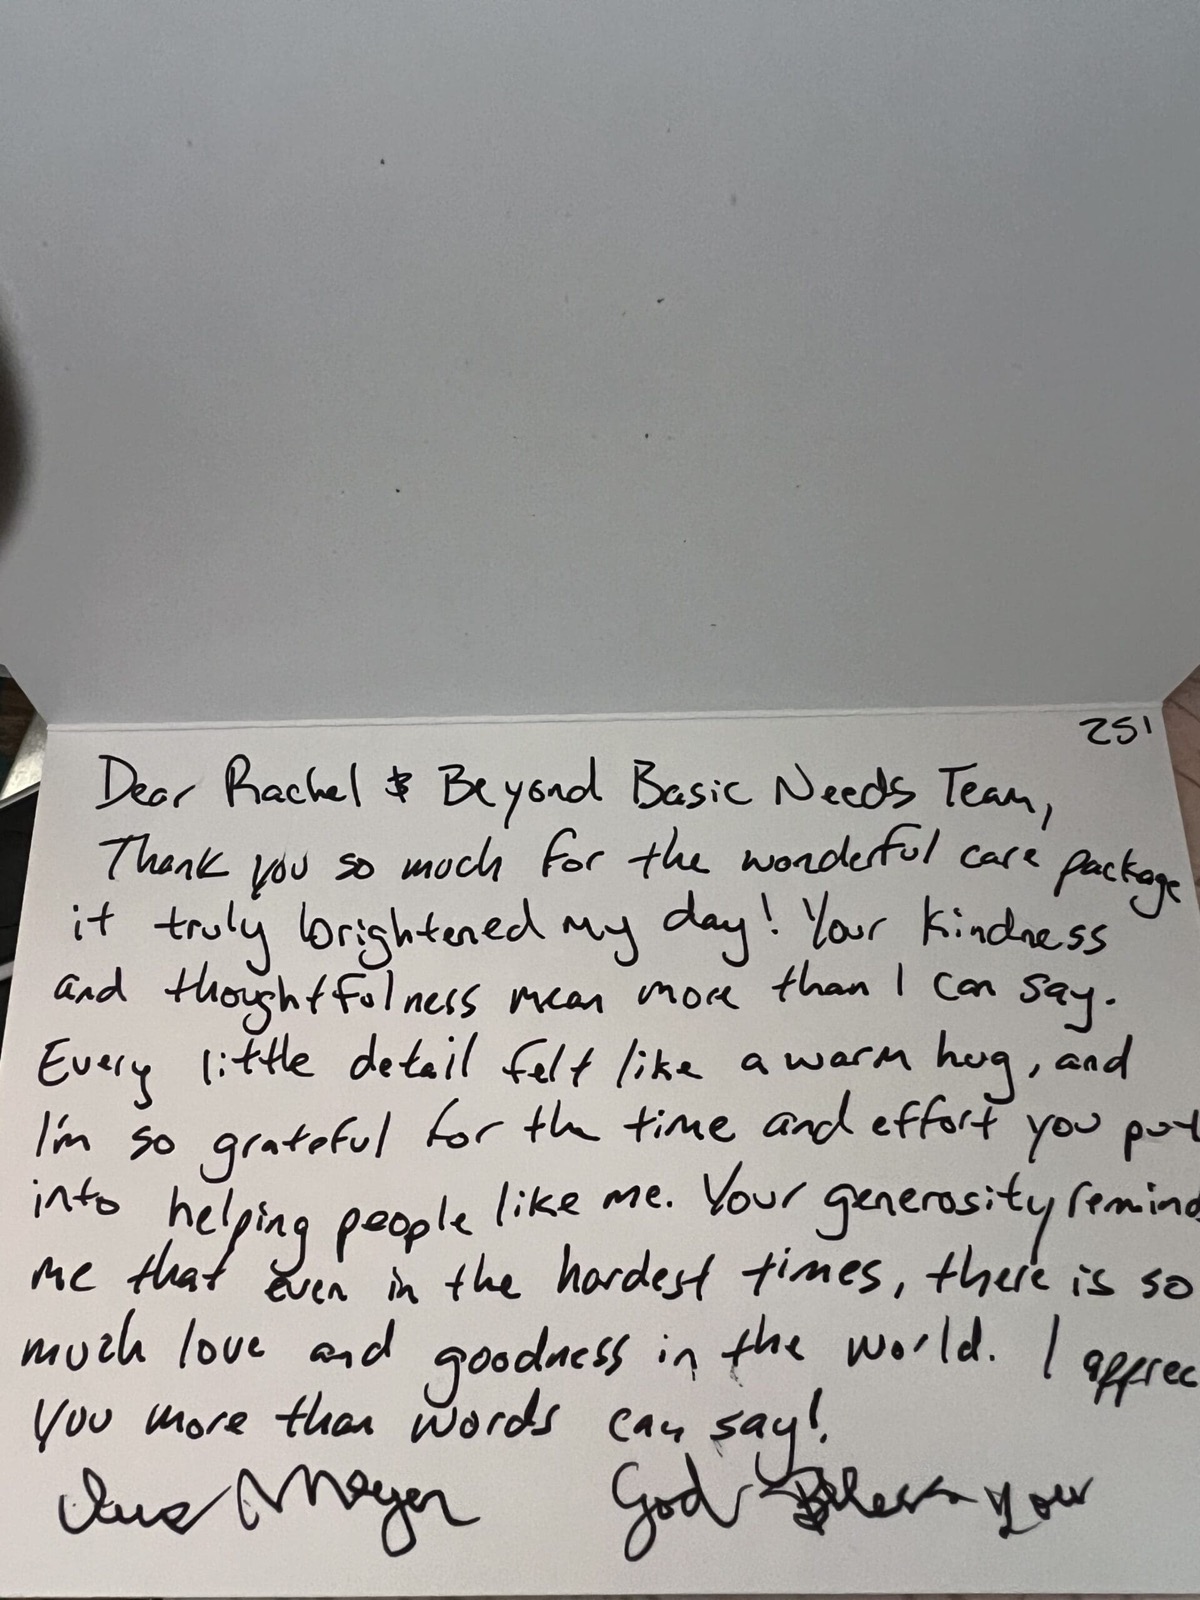 251
Dear Rachel & Beyond Basic Needs Team,
Thank you so much for the wonderful care package
it truly brightened my day! Your kindness
and thoughtfulness mean more than I can say.
Every little detail felt like a warm hug, and
I'm so grateful for the time and effort you put
into helping people like me. Your generosity remind
me that even in the hardest times, there is so
much love and goodness in the world. I apprec
you more than words can say!
Meyer God Bless you